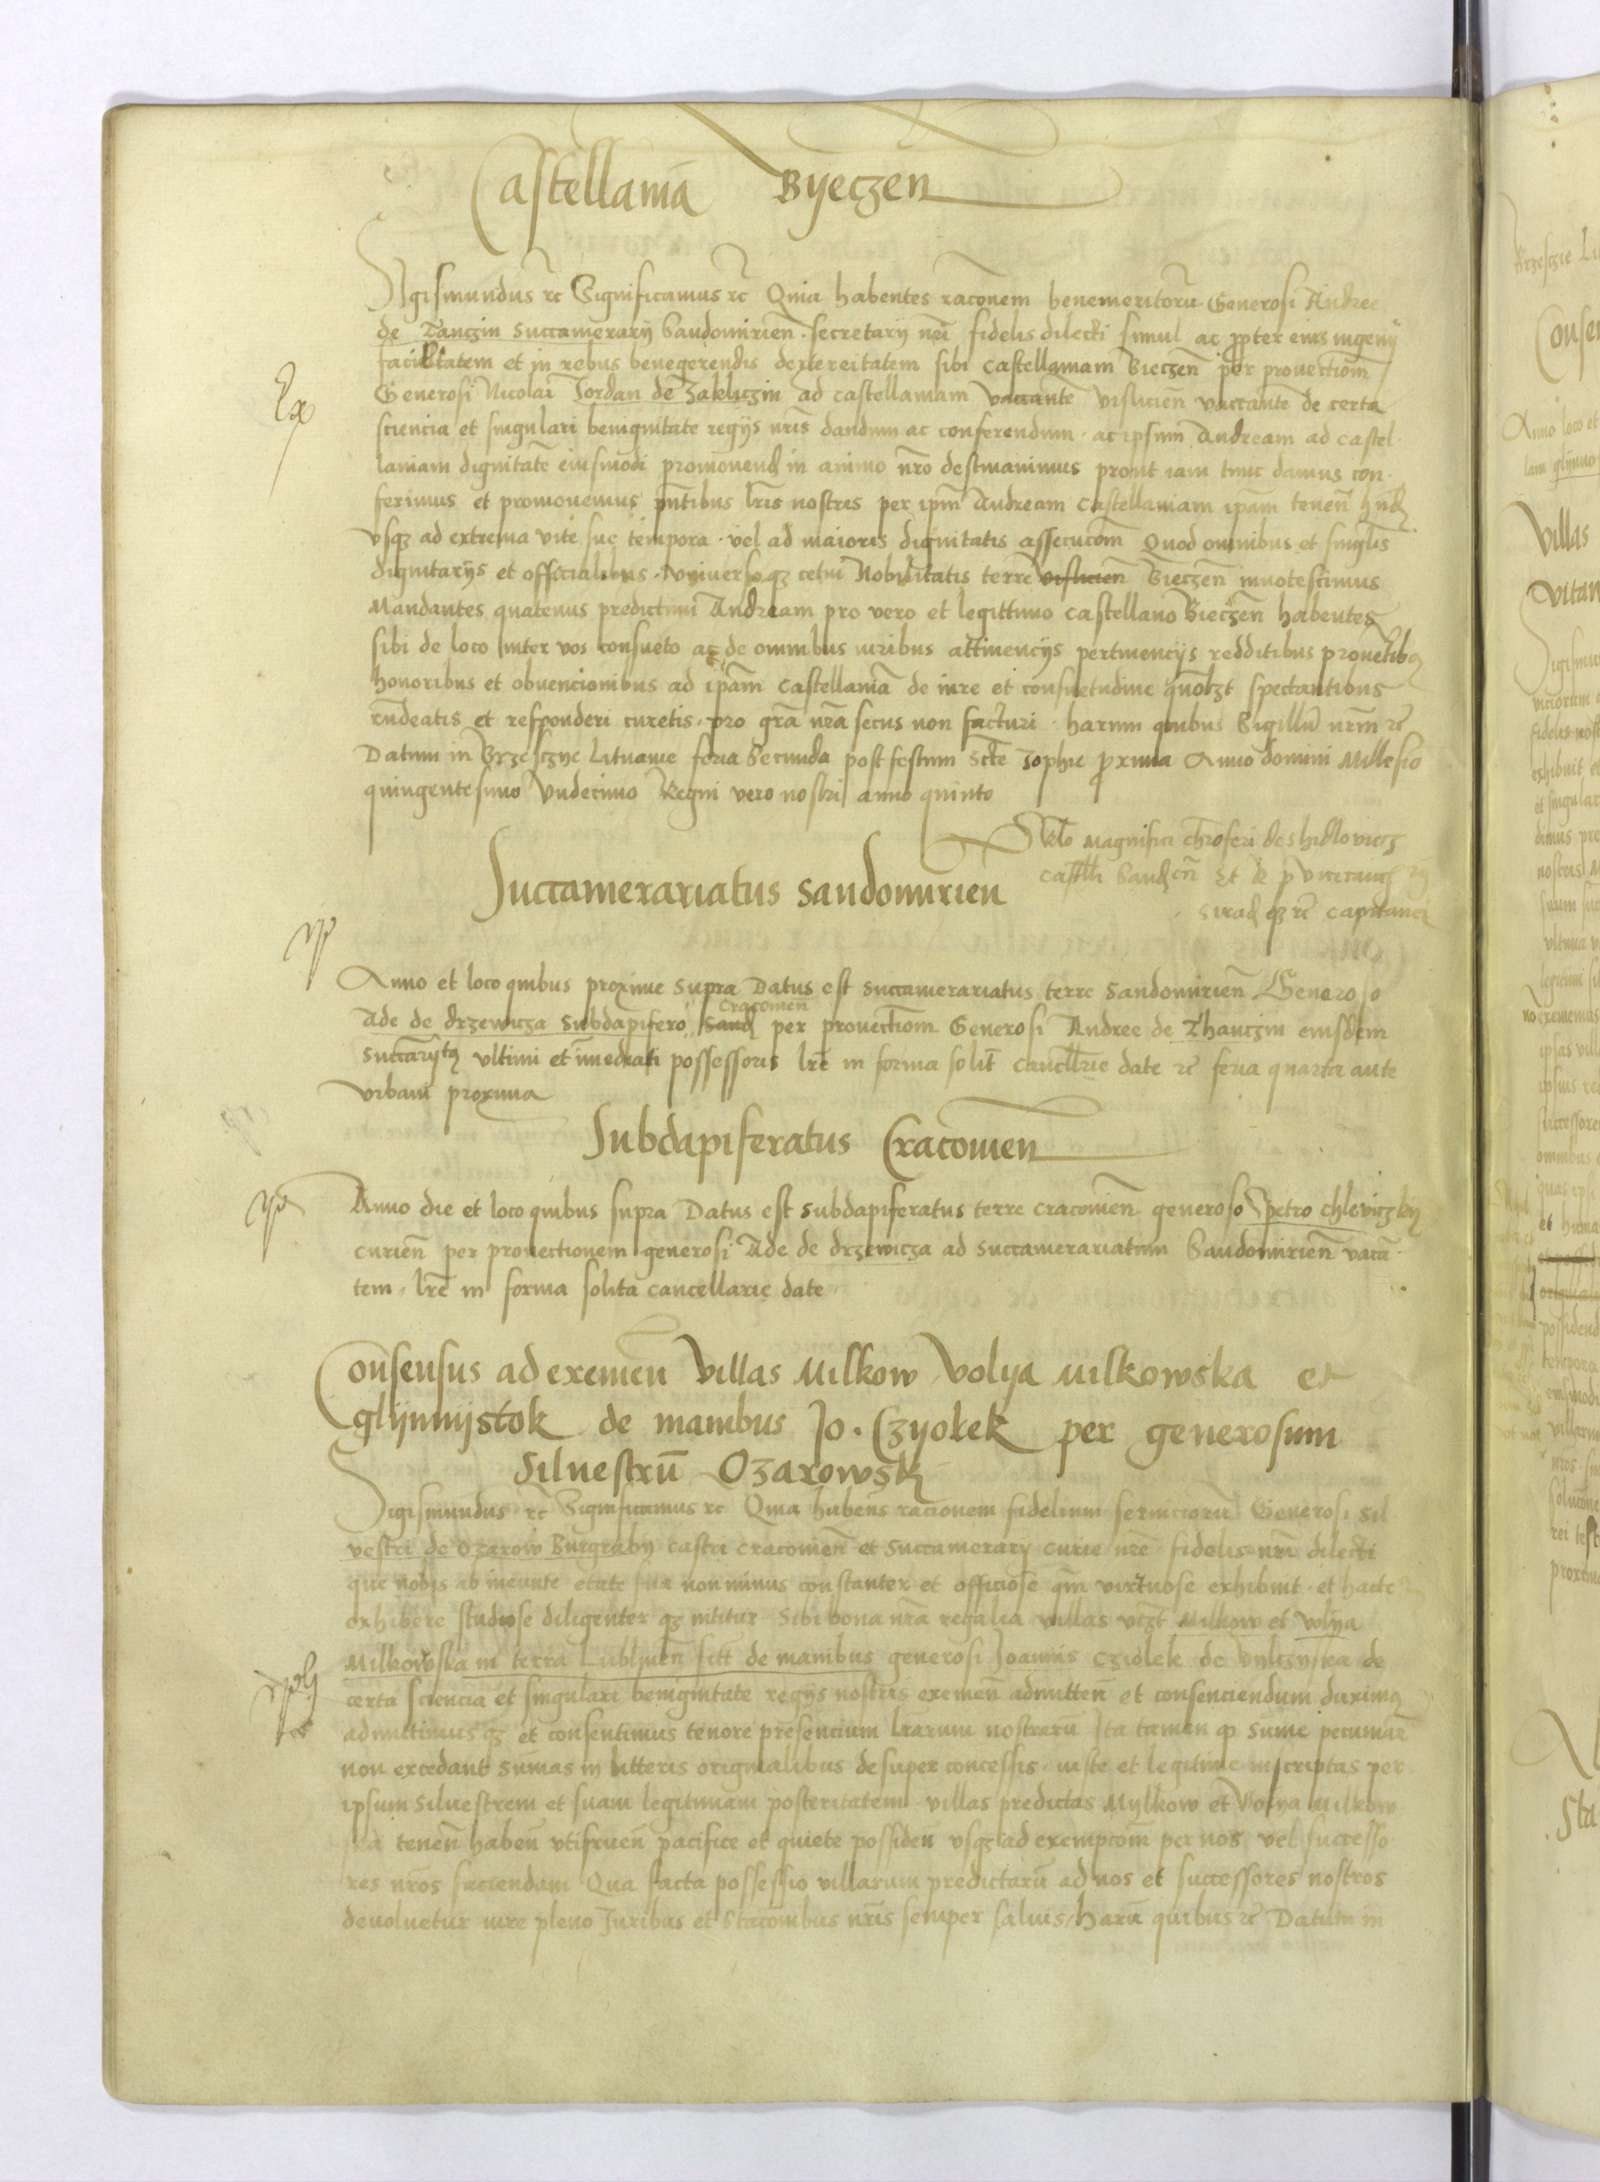 Castellania Byeczen
Sigismundus rc Significamus rc Quia habentes racōnem benemeritorū Generosi Andree
de Tanczin Succamerarij Sandomirien̄ . secretarij nr̄i fidelis dilecti simul ac ꝓpter eius ingenij
facilitatem et in rebus benegerendis dextereitatem sibi castellaniam Bieczen̄ per prouectiom̄
Generosi Nicolai Jordan de Zakliczin ad castellaniam vaccantē vislicien̄ vaccantē de certa
sciencia et singulari benignitate regijs nr̄is dandum ac conferendum . ac ipsum Andream ad castel-
laniam dignitatē eiusmodi promouend̄ in animo nr̄o destinauimus prout iam tunc damus con-
ferimus et promouemus pn̄tibus lr̄is nostris per ipm̄ Andream castellaniam ipam̄ tenen̄ hn̄d
vsqꝫ ad extrema vite sue tempora . vel ad maioris dignitatis assecucōm Quod omnibus et singlis̄
dignitarijs et officialibus . vniuersoqꝫ cetui Nobilitatis terre vislicien̄ Bieczen̄ innotescimus
Mandantes quatenus predictum Andream pro vero et legittimo castellano Bieczen̄ habentes
sibi de loco inter vos consueto ac de omnibus iuribus attinencijs pertinencijs redditibus prouētibꝫ
honoribus et obuencionibus ad ipam̄ castellaniā de iure et consuetudine quolꝫt spectantibus
rn̄deatis et responderi curetis . pro grā nrā secus non facturi . harum quibus Sigillū nrm̄ rc
Datum in Brzesczye Lituanie feria Secunda post festum Scte Zophie ꝓxima Anno domini Millesio
quingentesimo Vndecimo Regni vero nostri anno quinto
Rlo Magnifici Chroferi de Shidlovicz
castell̄i Sand en̄ et R P vicecanc rij
Sirad qꝫ rc capitanei
Ex
Succamerariatus Sandomirien
Anno et loco quibus proxime supra Datus est succamerariatus terre Sandomirien̄ Generoso
Ade de drzewicza Subdapifero Sand Cracouien̄ per prouectiom̄ Generosi Andree de Thanczin eiusdem
Succarijtꝫ vltimi et imediati possessoris lrē in forma solit̄ cancllr̄ie date rc feria quarta ante
vrbani proxima
Subdapiferatus Cracouien
Anno die et loco quibus supra Datus est subdapiferatus terre cracouien̄ generoso petro chlewiczky
curien̄ per prouectionem generosi Ade de drzewicza ad succamerariatum Sandomirien̄ vacā-
tem . lrē in forma solita cancellarie date
Consensus ad exemen̄ villas Milkow Volya Milkowska et
glijnnijstok de manibus Jo. Czyolek per generosum
Siluestrū Ozarowsk
Sigismundus rc Significamus rc Quia habens racionem fidelium seruiciorū Generosi Sil
vestri de Ozarow Burgraby castri cracouien̄ et Succamerarij curie nrē fidelis nrī dilecti
que nobis ab ineunte etate sua non minus constanter et officiose qm̄ virtuose exhibuit . et hacte
exhibere studiose diligenter qꝫ nititur Sibi bona nrā regalia villas vcꝫt Milkow et Volya
Milkowska in terra Lublinen̄ sitt de manibus generosi Joannis Cziolek de de
certa sciencia et singulari benignitate regijs nostris exemen̄ admitten̄ et consenciendum duximꝫ
admittimus qꝫ et consentimus tenore presencium lrārum nostrarū Ita tamen qꝫ sume pecuniar̄
non excedant sumas in litteris originalibus desuper concessis . iuste et legitime inscriptas per
ipsum Siluestrem et suam legitimam posteritatem villas predictas Mylkow et Volya Milkow
ska tenen̄ haben̄ vtifruen̄ pacifice et quiete possiden̄ vsqꝫ ad exempcōm per nos vel successo
res nrōs faciendam Qua facta possessio villarum predictarū ad nos et successores nostros
deuoluetur iure pleno Juribus et Stacōnibus nr̄is semper saluis . Harū quibus rc Datum in